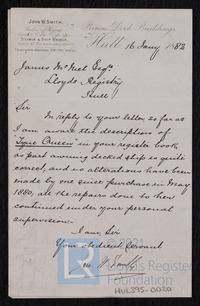 JOHN W. SMITH,
STORAGE & SHIP BROKER,
Prince's Dock Buildings,
Hull 16 Jany 1882
James McNiel Esqre
Lloyds Registry
Hull
Sir
In Reply to your letter so far as
I am aware the description of
Tyne Queen in your register book
as part awning decked ship is quite
correct, and no alterations have been
made by me since purchase in May
1880, all the repairs done to her
continued under your personal
supervision.
I am, Sir
Your obedient Servant
W Smith
Lloyd's Register
Foundation
HUL395-0020